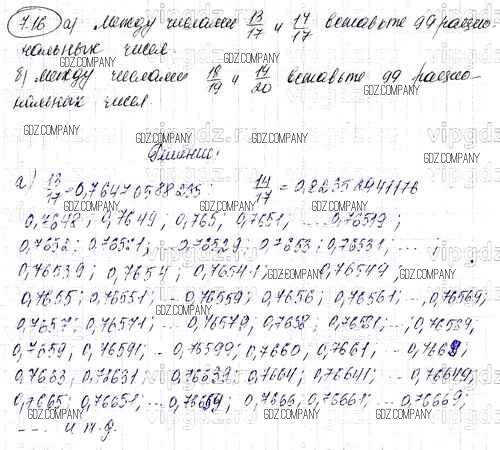 7.16 а) Между числами 13/17 и 14/17 вставьте 99 рацио-
нальных чисел.
GDZ.COMPANY
б) между числами 18/19 и 19/20 вставьте 99 рацио-
нальных чисел.
GDZ.COMPANY
Решение:
а) 13/17 = 0,76470588235; 14/17 = 0,82352941176
0,7648; 0,7649; 0,765; 0,7651; ... 0,76519;
0,7652; 0,76521; ... 0,76529; 0,7653; 0,76531; ...
0,76539; 0,7654; 0,76541; ... 0,76549;
0,7655; 0,76551; ... 0,76559; 0,7656; 0,76561; ..., 0,76569;
0,7657; 0,76571; ... 0,76579; 0,7658; 0,76581; ...; 0,76589;
0,7659; 0,76591; ... 0,76599; 0,7660; 0,7661; ... 0,7669;
0,7663; 0,76631; ... 0,76639; 0,7664; 0,76641; ... 0,76649;
0,7665; 0,76651; ... 0,76659; 0,7666; 0,76661; ... 0,76669;
... и т.д.
GDZ.COMPANY
vipgdz.ru